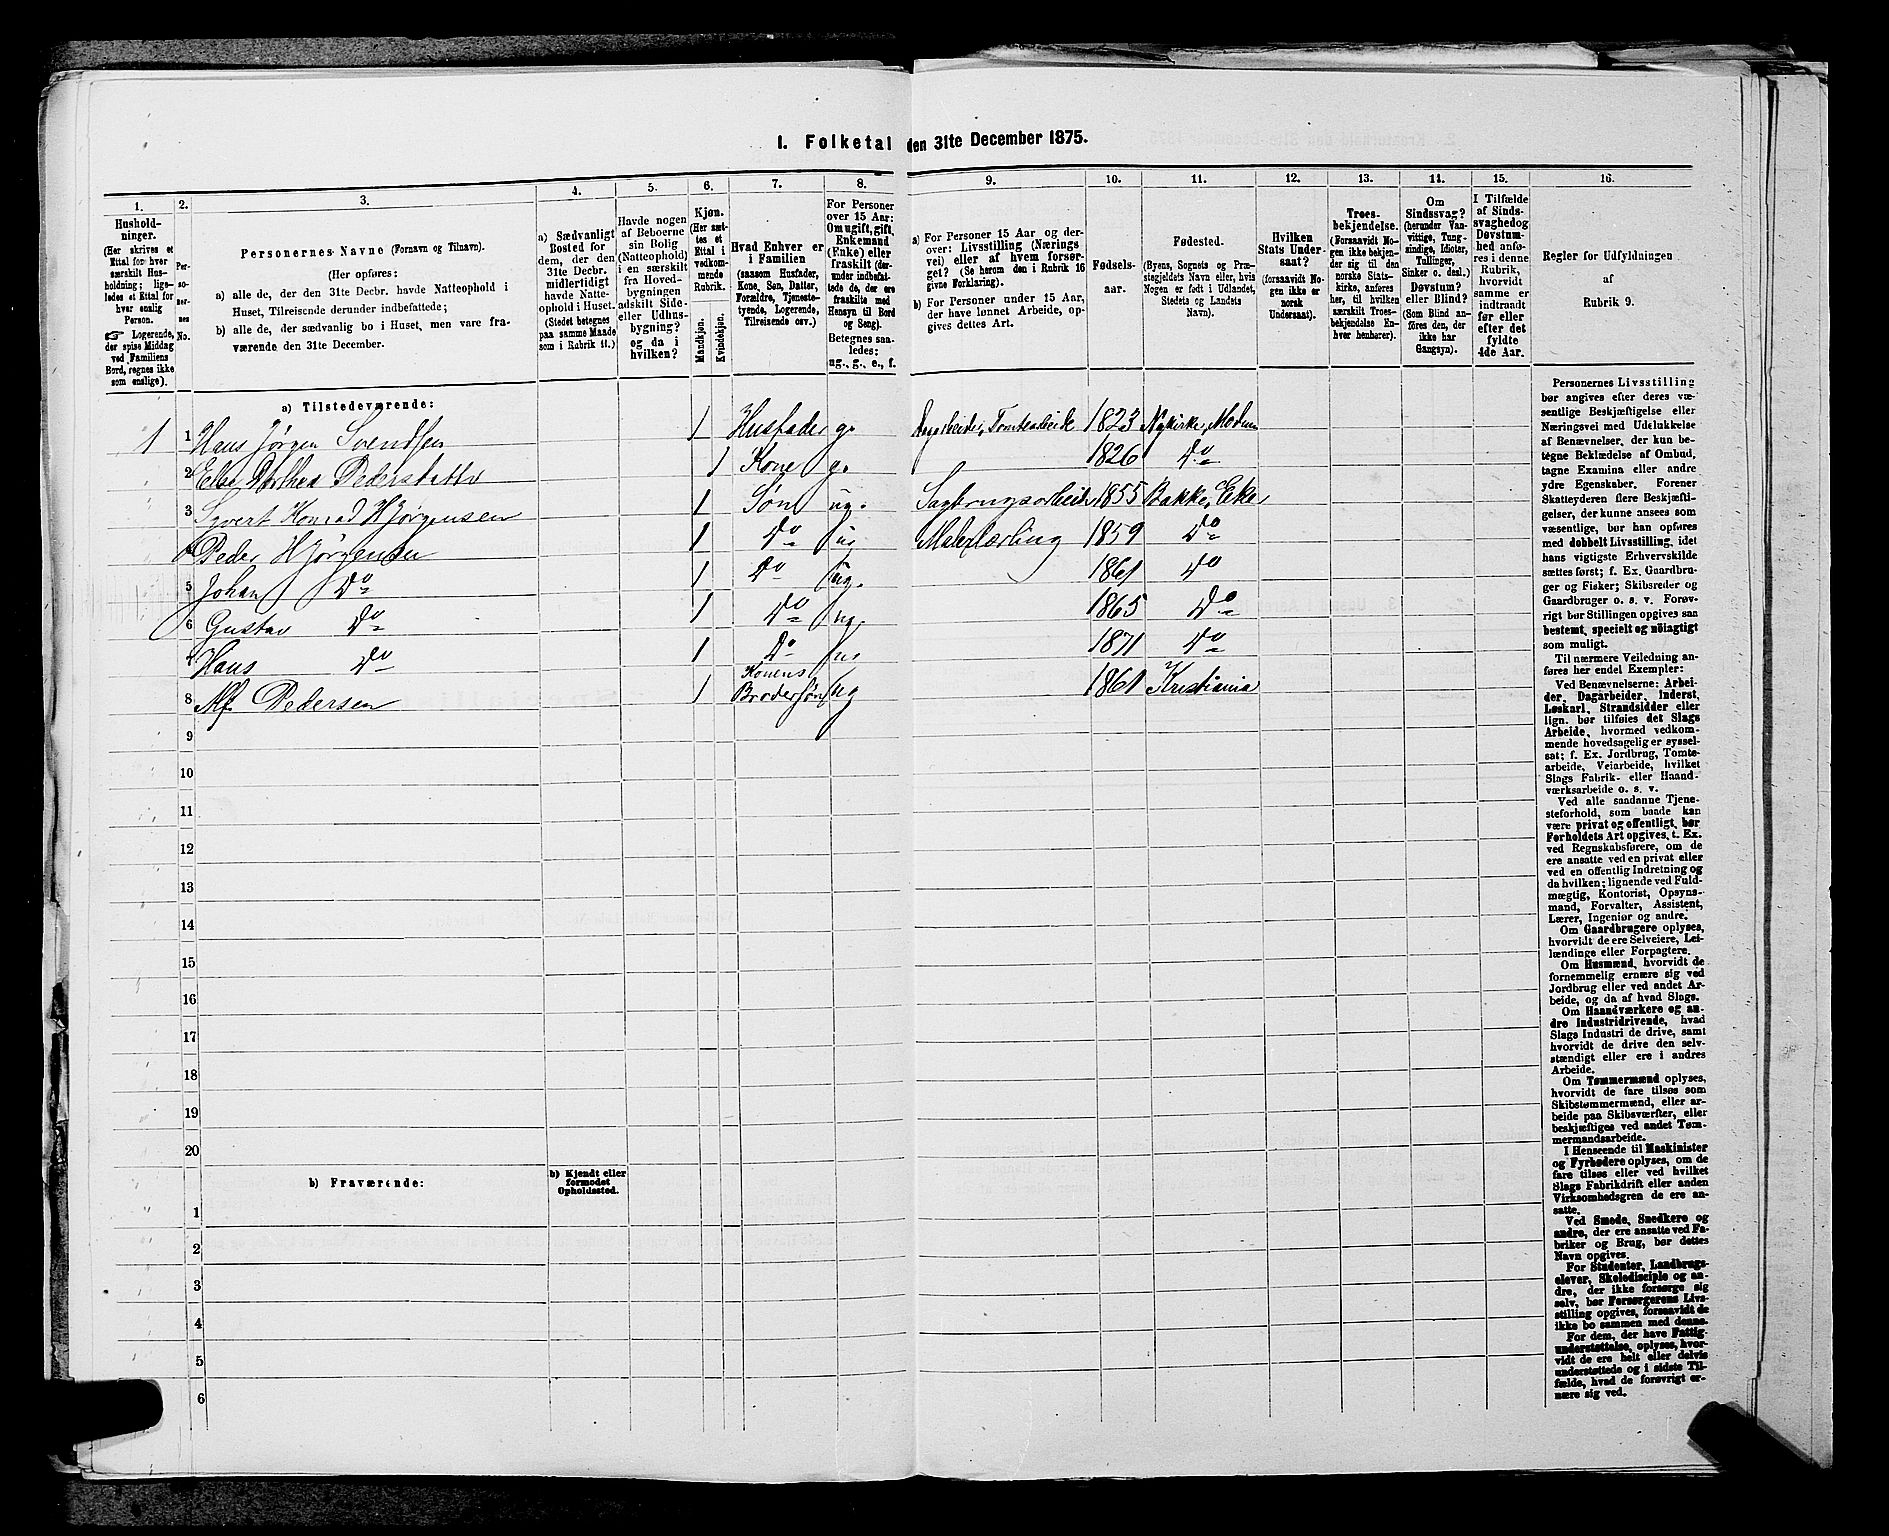 I. Folketal den 31te December 1875.
1. 2. 3. 4. 5. 6. 7. 8. 9. 10. 11. 12. 13. 14. 15. 16.
Husholdninger.
(Her skrives et
Ettal for hver
særskilt Husholdning;
ligeledes et Ettal for
hver enslig
Person.
☞ Logerende,
der spise Middag
ved Familiens
Bord, regnes ikke
som enslige).
Personernes No.
Personernes Navne (Fornavn og Tilnavn).
(Her opføres:
a) alle de, der den 31te Decbr. havde Natteophold i
Huset, Tilreisende derunder indbefattede;
b) alle de, der sædvanlig bo i Huset, men vare fraværende den 31te December.
a) Sædvanligt
Bosted for
dem, der den
31te Decbr.
midlertidigt
havde Natteophold i Huset.
(Stedet betegnes
paa samme Maade
som i Rubrik 11.)
Havde nogen
af Beboerne
sin Bolig
(Natteophold)
i en særskilt
fra Hovedbygningen
adskilt Side-
eller Udhusbygning?
og da i
hvilken?
Kjøn.
(Her sættes et
Ettal i
vedkommende
Rubrik.
Mandkjøn.
Kvindekjøn.
Hvad Enhver er
i Familien
(saasom Husfader,
Kone, Søn, Datter,
Forældre, Tjenestetyende, Logerende,
Tilreisende osv.)
For Personer
over 15 Aar:
Om ugift, gift,
Enkemand
(Enke) eller
fraskilt (derunder indbefattede de, der ere
fraskilte med
Hensyn til Bord
og Seng).
Betegnes saaledes:
ug., g., e., f.
a) For Personer 15 Aar og derover: Livsstilling (Nærings
vei) eller af hvem forsørget? (Se herom den i Rubrik 16
givne Forklaring).
b) For Personer under 15 Aar,
der have lønnet Arbeide, opgives dettes Art.
Fødselsaar.
Fødested.
(Byens, Sognets og Præstegjeldets Navn eller, hvis
Nogen er født i Udlandet,
Stedets og Landets
Navn).
Hvilken
Stats Undersaat?
(forsaavidt Nogen ikke er
norsk
Undersaat).
Troesbekjendelse.
(Forsaavidt Nogen ikke bekjender sig til den
norske Statskirke, anføres
her, til hvilken
særskilt Troesbekjendelse Enhver henhører).
Om
Sindssvag?
(herunder Vanvittige, Tungsindige, Idioter,
Tullinger,
Sinker o. desl.)
Døvstum?
eller Blind?
(Som Blind anføres den, der
ikke har
Gangsyn).
I Tilfælde
af Sindssvaghed og
Døvstumhed anføres i denne
Rubrik,
hvorvidt
samme er
indtraadt
før eller
efter det
fyldte
4de Aar.
Regler for Udfyldningen
af
Rubrik 9.
a) Tilstedeværende:
1 1 Hans Jørgen Svendsen 1 Husfader g. Tomtearbeide 1823 Nykirke, Modum
2 Pedersdatter 1 Kone g. 1826 Do
3 Syvert Konrad HJørgensen 1 Søn ug. Sagbrugsarbeide 1855 Bakke, Eker
4 Peder HJørgensen 1 Do ug Malerlærling 1859 Do
5 Johan Do 1 Do ug. 1861 Do
6 Gustav Do 1 Do ug. 1865 Do
7 Hans Do 1 Do ug 1871 Do
8 Alf Pedersen 1 Konens Brodersøn ug 1861 Kristiania
9
10
11
12
13
14
15
16
17
18
19
20
b) Fraværende:
b) Kjendt eller
formodet
Opholdssted.
1
2
3
4
5
6
Personernes Livsstilling
bør angives efter deres væsentlige Beskjæftigelse eller
Næringsvei med Udelukkelse
af Benævnelser, der kun betegne Beklædelse af Ombud,
tagne Examina eller andre
ydre Egenskaber. Forener
Skatteyderen flere Beskjæftigelser, der kunne ansees som
væsentlige, bør han opføres
med dobbelt Livsstilling, idet
hans vigtigste Erhvervskilde
sættes først; f. Ex. Gaardbruger og Fisker; Skibsreder og
Gaardbruger o. s. v. Forøvrigt bør Stillingen opgives saa
bestemt, specielt og nöiagtigt
som muligt.
Til nærmere Veiledning anføres her endel Exempler:
Ved Benævnelserne: Arbeider, Dagarbeider, Inderst,
Løskarl, Strandsidder eller
lign. bør tilføies det Slags
Arbeide, hvormed vedkommende hovedsagelig er sysselsat; f. Ex. Jordbrug, Tomtearbeide, Veiarbeide, hvilket
Slags Fabrik- eller Haandværksarbeide o. s. v.
Ved alle saadanne Tjenesteforhold, som baade kan
være privat og offentligt, bør
Forholdets Art opgives, t. Ex.
ved Regnskabsførere, om de
ere ansatte ved en privat eller
ved en offentlig Indretning og
da hvilken; lignende ved Fuldmægtig, Kontorist, Opsynsmand, Forvalter, Assistent,
Lærer, Ingeniør og andre.
Om Gaardbrugere oplyses,
hvorvidt de ere Selveiere, Leilændinge eller Forpagtere.
Om Husmænd, hvorvidt de
fornemmelig ernære sig ved
Jordbrug eller ved andet Arbeide, og da af hvad Slags.
Om Haandværkere og andre Industridrivende, hvad
Slags Industri de drive, samt
hvorvidt de drive den selvstændigt eller ere i andres
Arbeide.
Om Tømmermænd oplyses,
hvorvidt de fare tilsøs som
Skibstømmermænd, eller arbeide paa Skibsværfter, eller
beskjæftiges ved andet Tømmermandsarbeide.
I Henseende til Maskinister
og Fyrbødere oplyses, om de
fare tilsøs eller ved hvilket
Slags Fabrikdrift eller anden
Virksomhedsgren de ere ansatte.
Ved Smede, Snedkere og
andre, der ere ansatte ved Fabriker og Brug, bør dettes
Navn opgives.
For Studenter, Landbrugselever, Skoledisciple og andre, der ikke forsørge sig
selv, bør Forsørgerens Livsstilling opgives, forsaavidt de
ikke bo sammen med denne.
For dem, der have Fattigunderstøttelse, oplyses, hvorvidt de ere helt eller delvis
understøttede og i sidste Tilfælde, hvad de forøvrigt ernære sig ved.